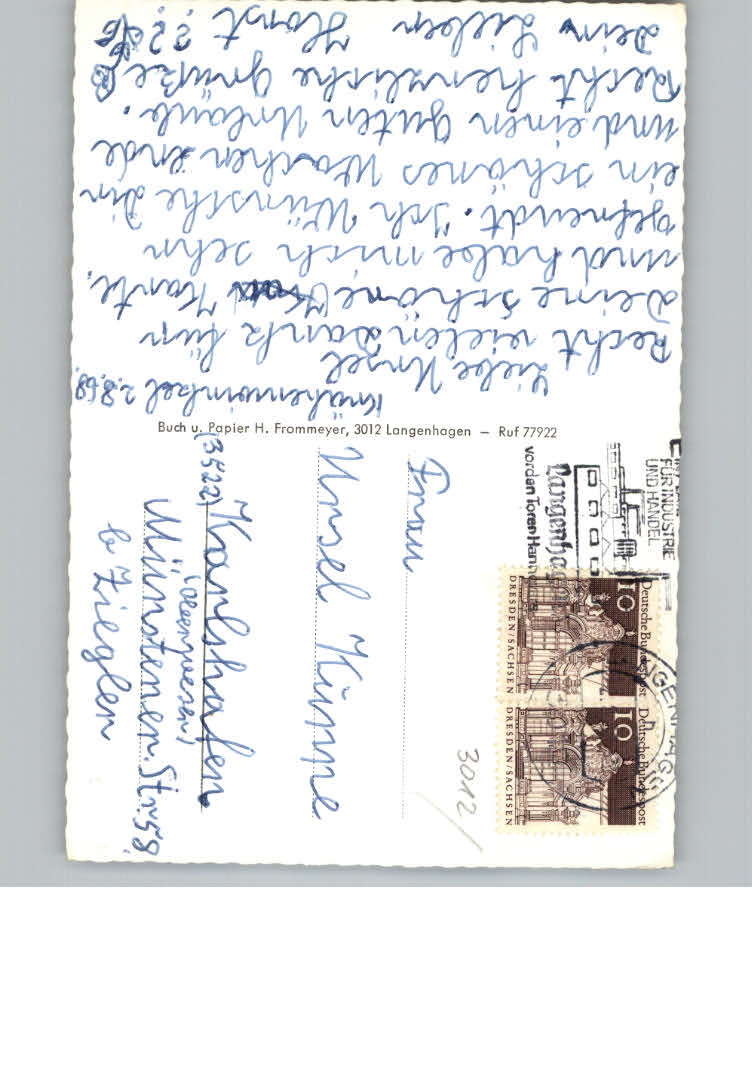 Krähenwinkel 2.8.68.
Liebe Ursel
Recht vielen Dank für
Deine schöne Karte,
und habe mich sehr
gefreudt. Ich Wünsche Dir
ein schönes Wochen ende
und einen guten Urlaub.
Recht herzliche Grüße
Dein Lieber Horst ? ?
Buch u. Papier H. Frommeyer, 3012 Langenhagen — Ruf 77922
FÜR INDUSTRIE
UND HANDEL
Langenhagen
vor den Toren Hannovers
LANGENHAGEN
Deutsche Bundespost
10
DRESDEN/SACHSEN
Deutsche Bundespost
10
DRESDEN/SACHSEN
3012/
Frau
Ursel Kümpe
(3522) Karlshafen
(Oberweser)
Münstener. Str. 58
b Ziegler